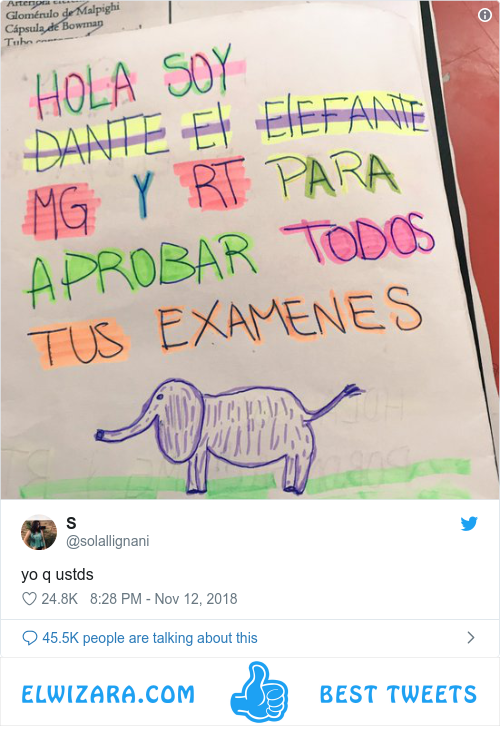 Glomérulo de Malpighi
Cápsula de Bowman
HOLA SOY
DANTE El ElEFANTE
MG Y RT PARA
APROBAR TODOS
TUS EXAMENES
S
@solallignani
yo q ustds
24.8K 8:28 PM - Nov 12, 2018
45.5K people are talking about this
ELWIZARA.COM BEST TWEETS